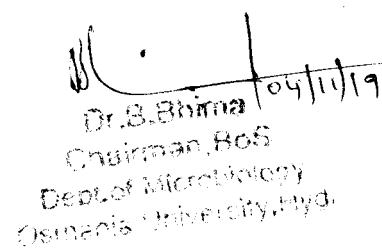 04/11/19
Dr.B.Bhima
Chairman, BoS
Dept.of Microbiology
Osmania University, Hyd.